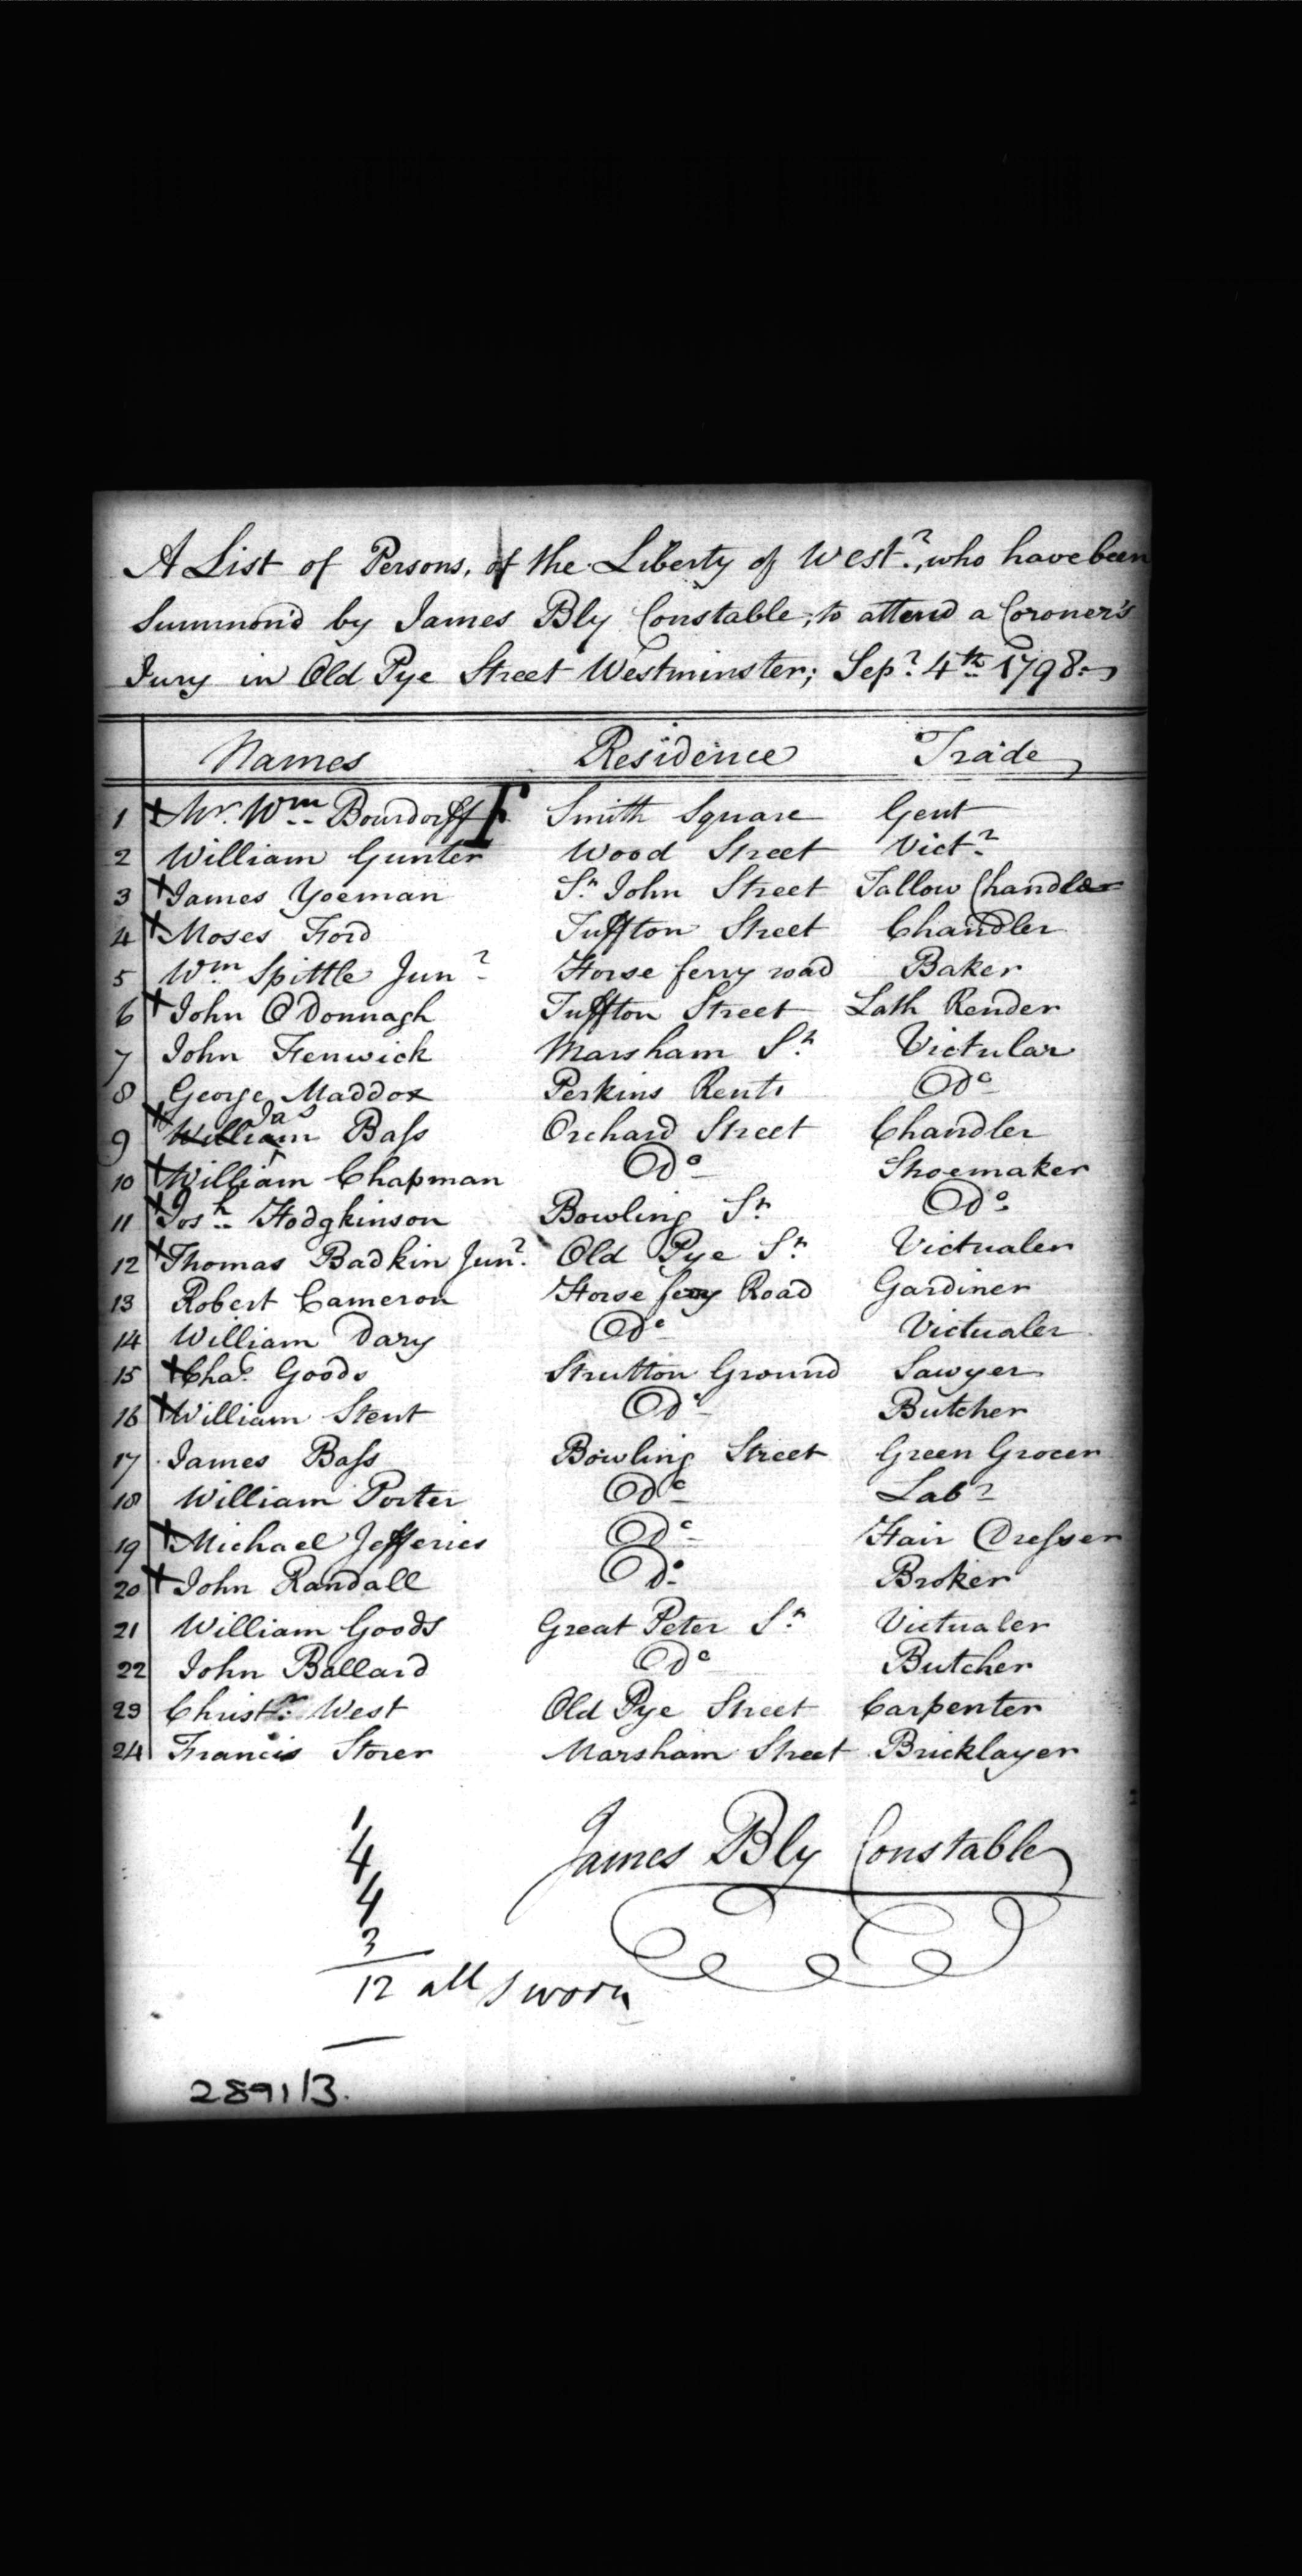 A List of Persons, of the Liberty of Westr., who have been
Summon'd by James Bly Constable; to attend a Coroner's
Jury in Old Pye Street Westminster; Sepr. 4th 1798.
Names Residence Trade
1 X Mr. Wm. Bourdorff F Smith Square Gent
2 William Gunter Wood Street Victr.
3 X James Yoeman St. John Street Tallow Chandler
4 X Moses Ford Tuffton Street Chandler
5 Wm. Spittle Junr. Horse ferry road Baker
6 X John O Donnagh Tuffton Street Lath Render
7 John Fenwick Marsham St. Victular
8 George Maddox Perkins Rents Do.
9 X William Jas Bass Orchard Street Chandler
10 X William Chapman Do. Shoemaker
11 X Josh. Hodgkinson Bowling St. Do.
12 X Thomas Badkin Junr. Old Pye St. Victualer
13 Robert Cameron Horse ferry Road Gardiner
14 William Dary Do. Victualer
15 X Chas. Goods Strutton Ground Sawyer
16 X William Stent Do. Butcher
17 James Bass Bowling Street Green Grocer
18 William Porter Do. Labr.
19 X Michael Jefferies Do. Hair Dresser
20 X John Randall Do. Broker
21 William Goods Great Peter St. Victualer
22 John Ballard Do. Butcher
23 Christr. West Old Pye Street Carpenter
24 Francis Storer Marsham Street Bricklayer
1
4
4
3
12 all sworn
James Bly Constable
2891/3.